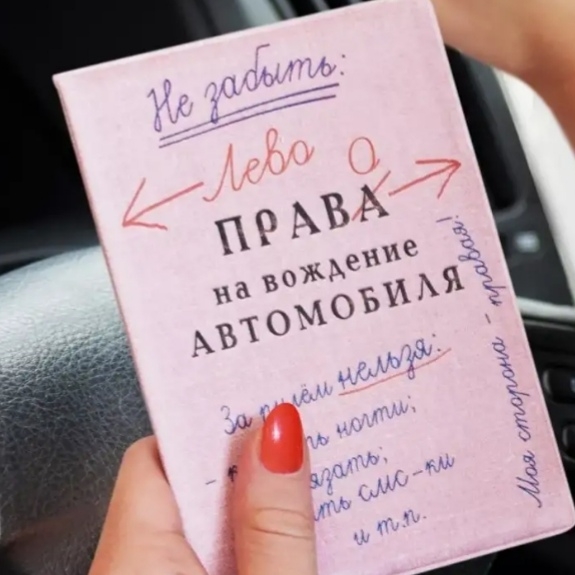 Не забыть:
Лево О
ПРАВА
на вождение
АВТОМОБИЛЯ
За рулём нельзя:
ногти;
-
смс-ки
и т.п.
Моя сторона - правая!